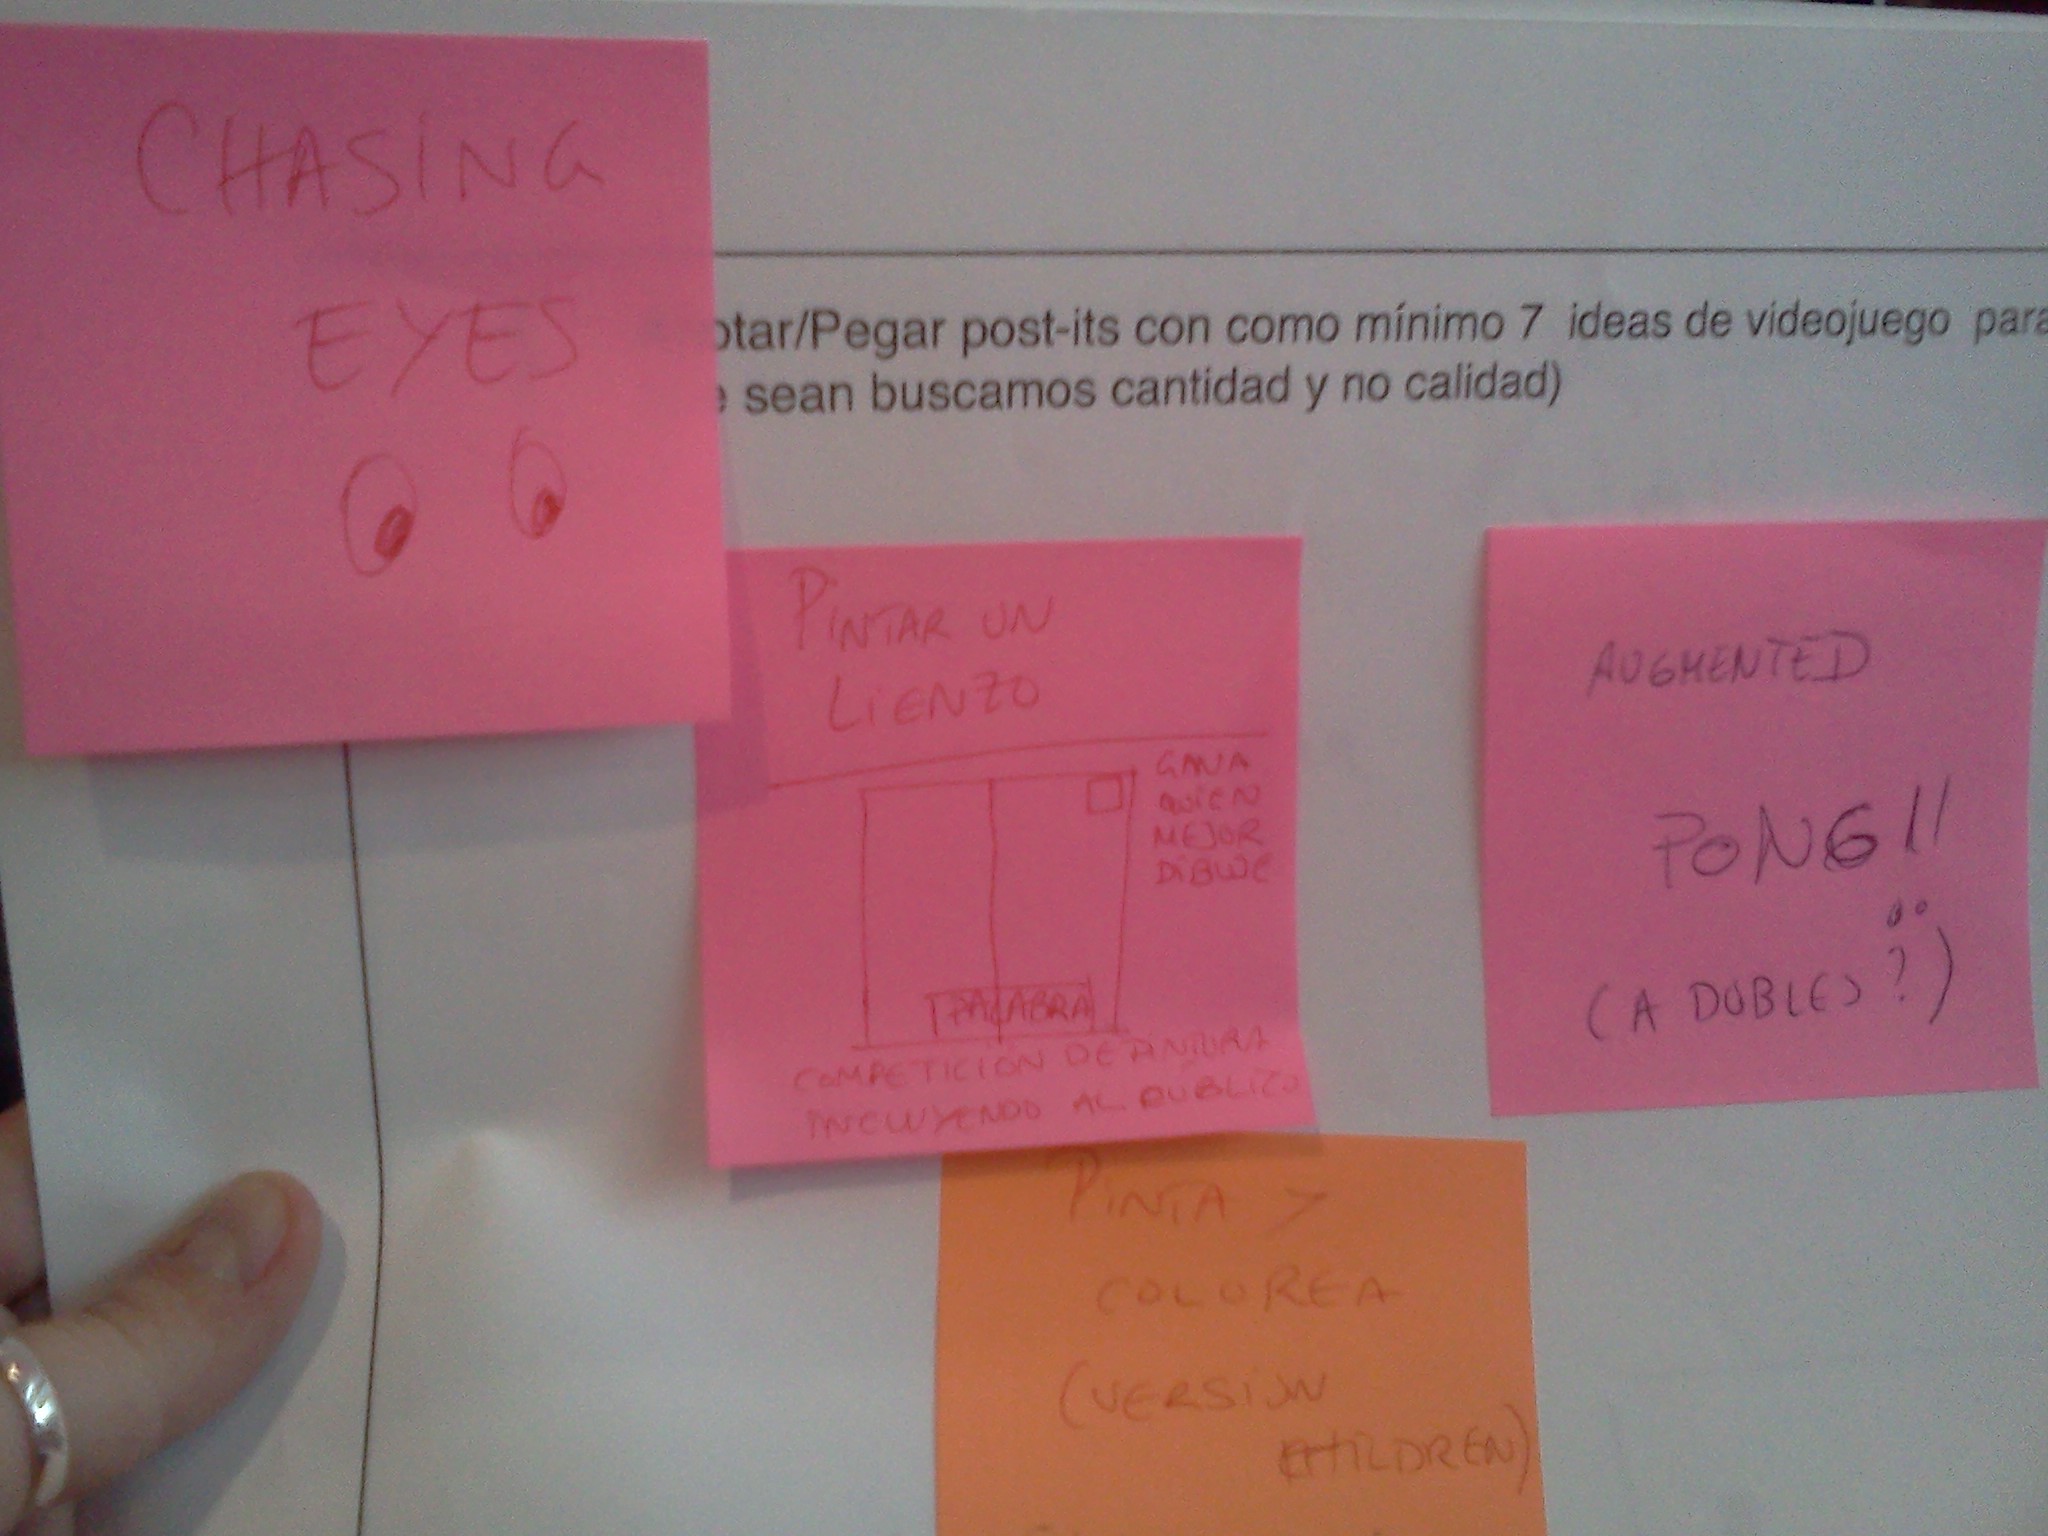 CHASING
EYES
otar/Pegar post-its con como mínimo 7 ideas de videojuego para
sean buscamos cantidad y no calidad)
PINTAR UN
LIENZO
GANA
QUIEN
MEJOR
DIBUJE
PALABRA
COMPETICIÓN DE PINTURA
INCLUYENDO AL PÚBLICO
AUGMENTED
PONG!!
(A DOBLES?)
PINTA Y
COLOREA
(VERSION
CHILDREN)